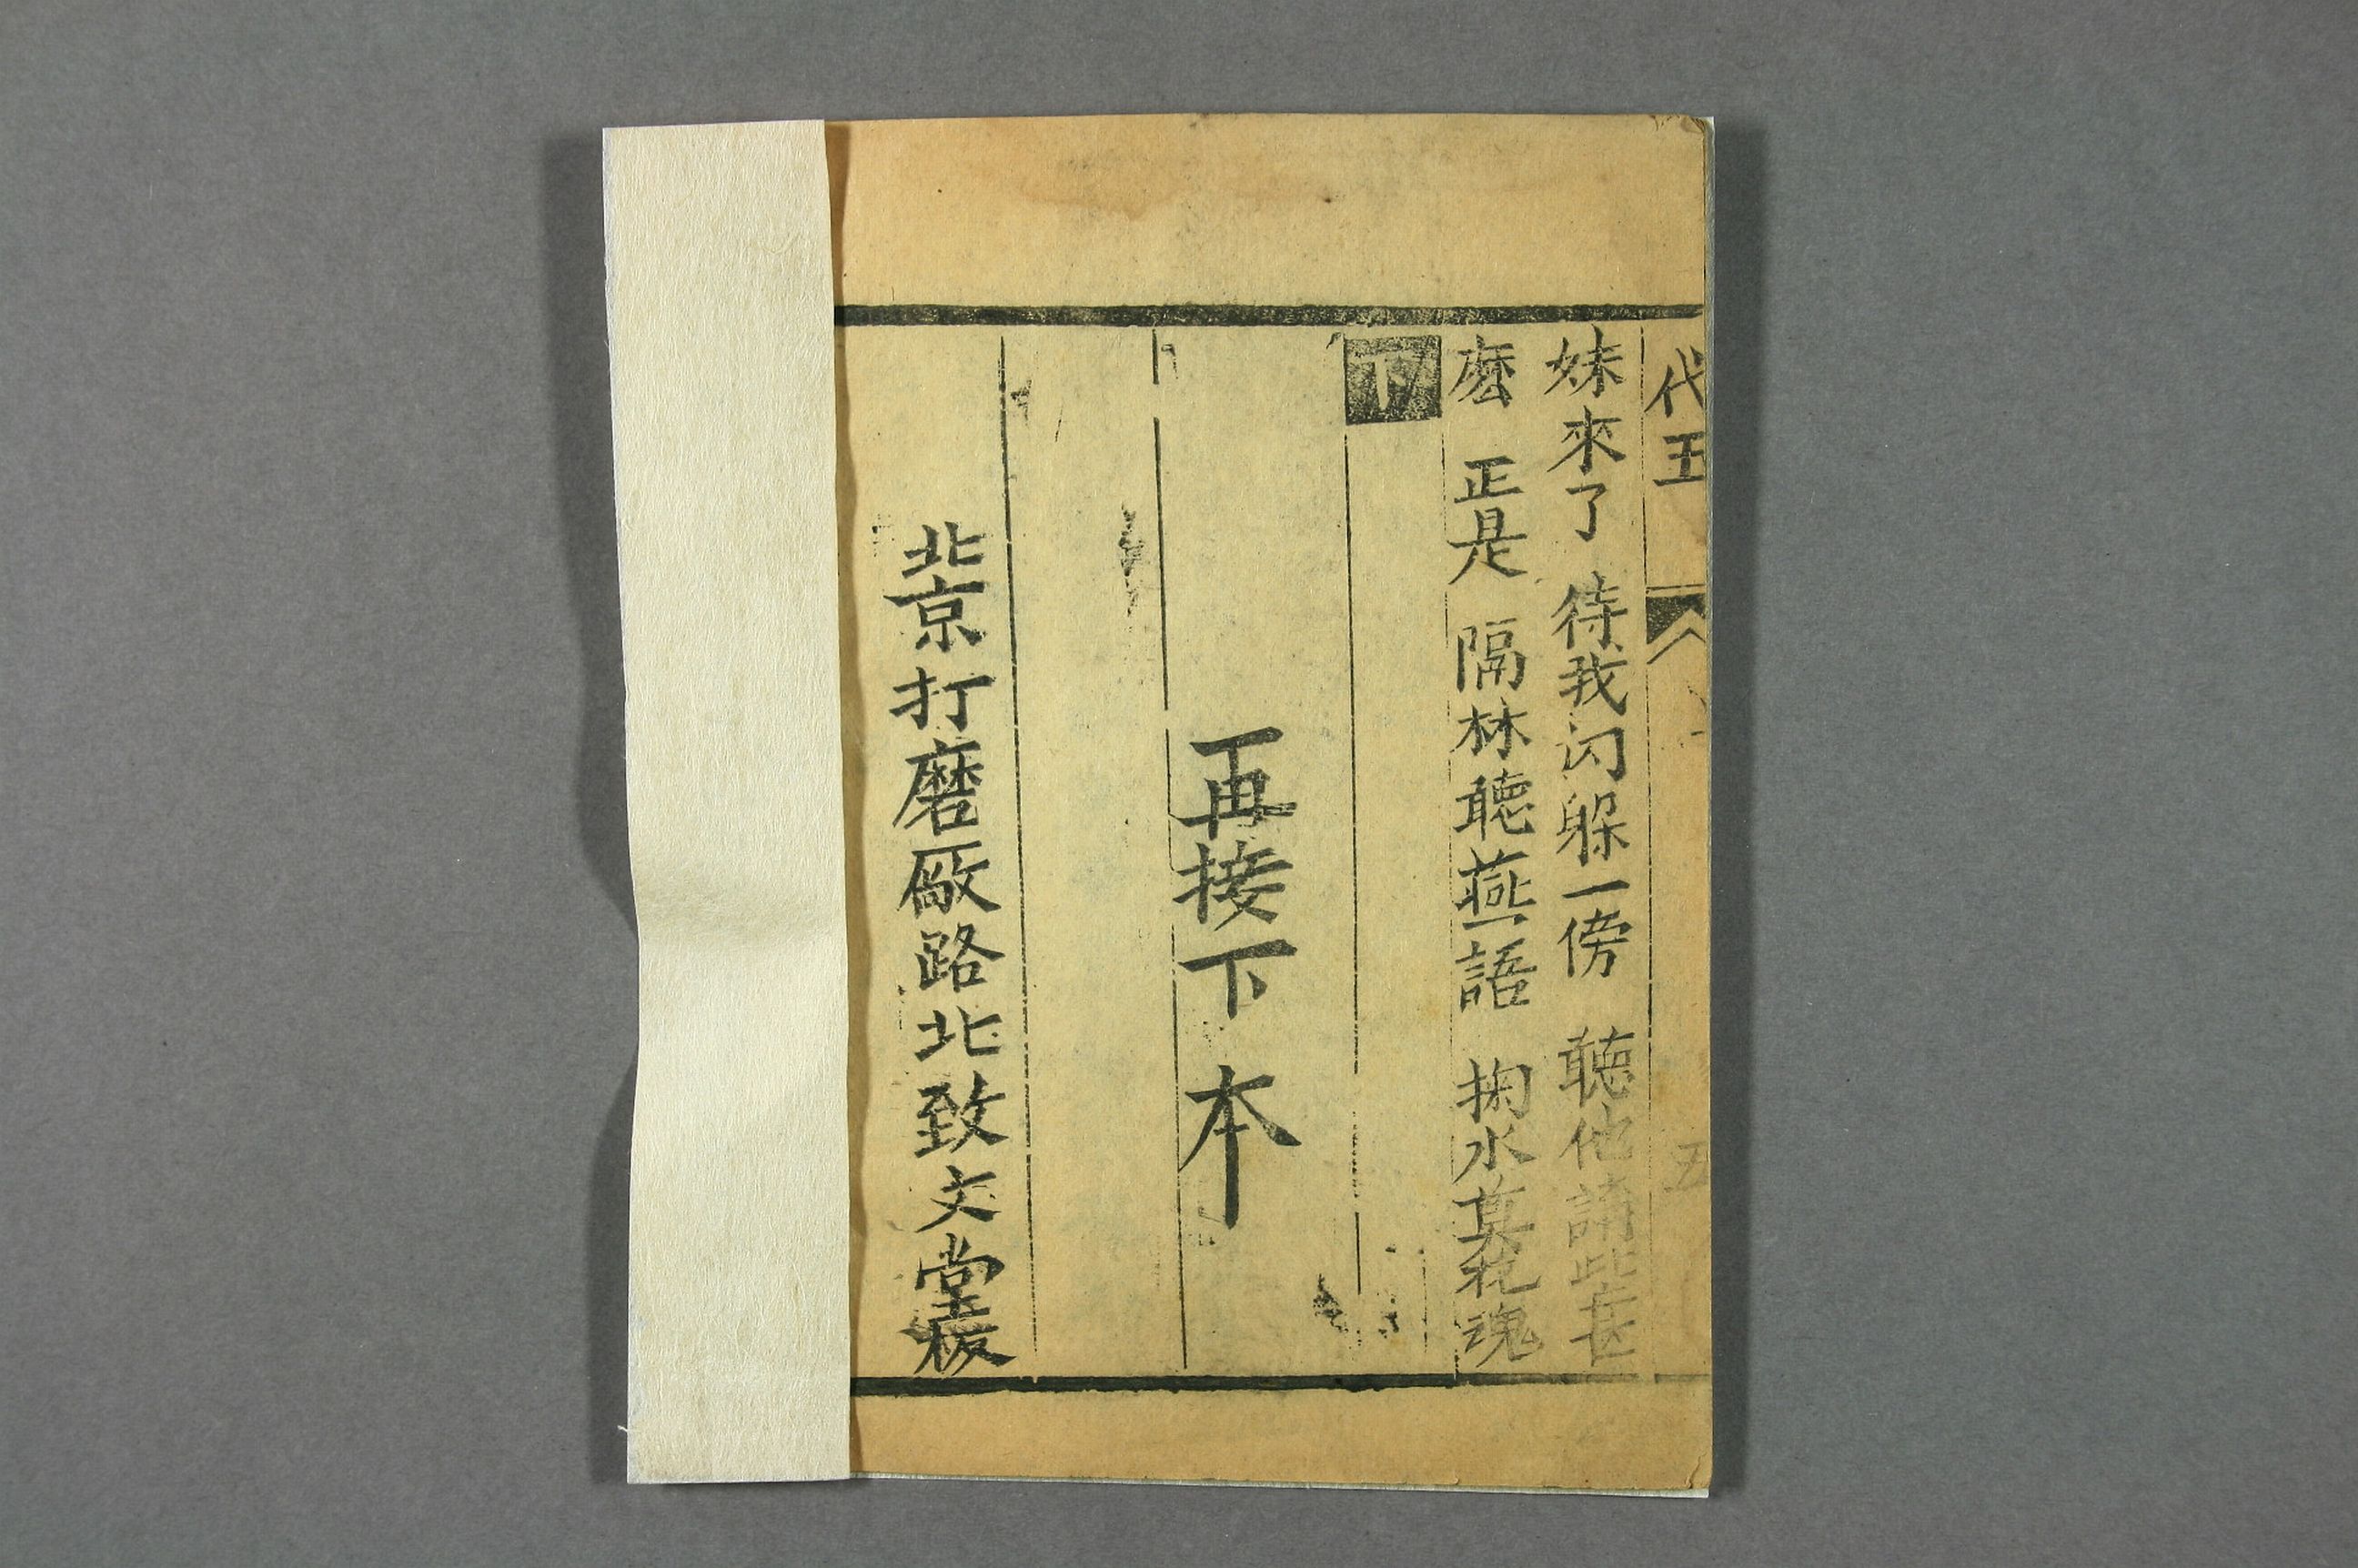 代五
五
妹來了 待我闪躲一傍 聽他講此甚
麽 正是 隔林聽燕語 掬水莫花魂
下
再接下本
北京打磨厰路北致文堂板